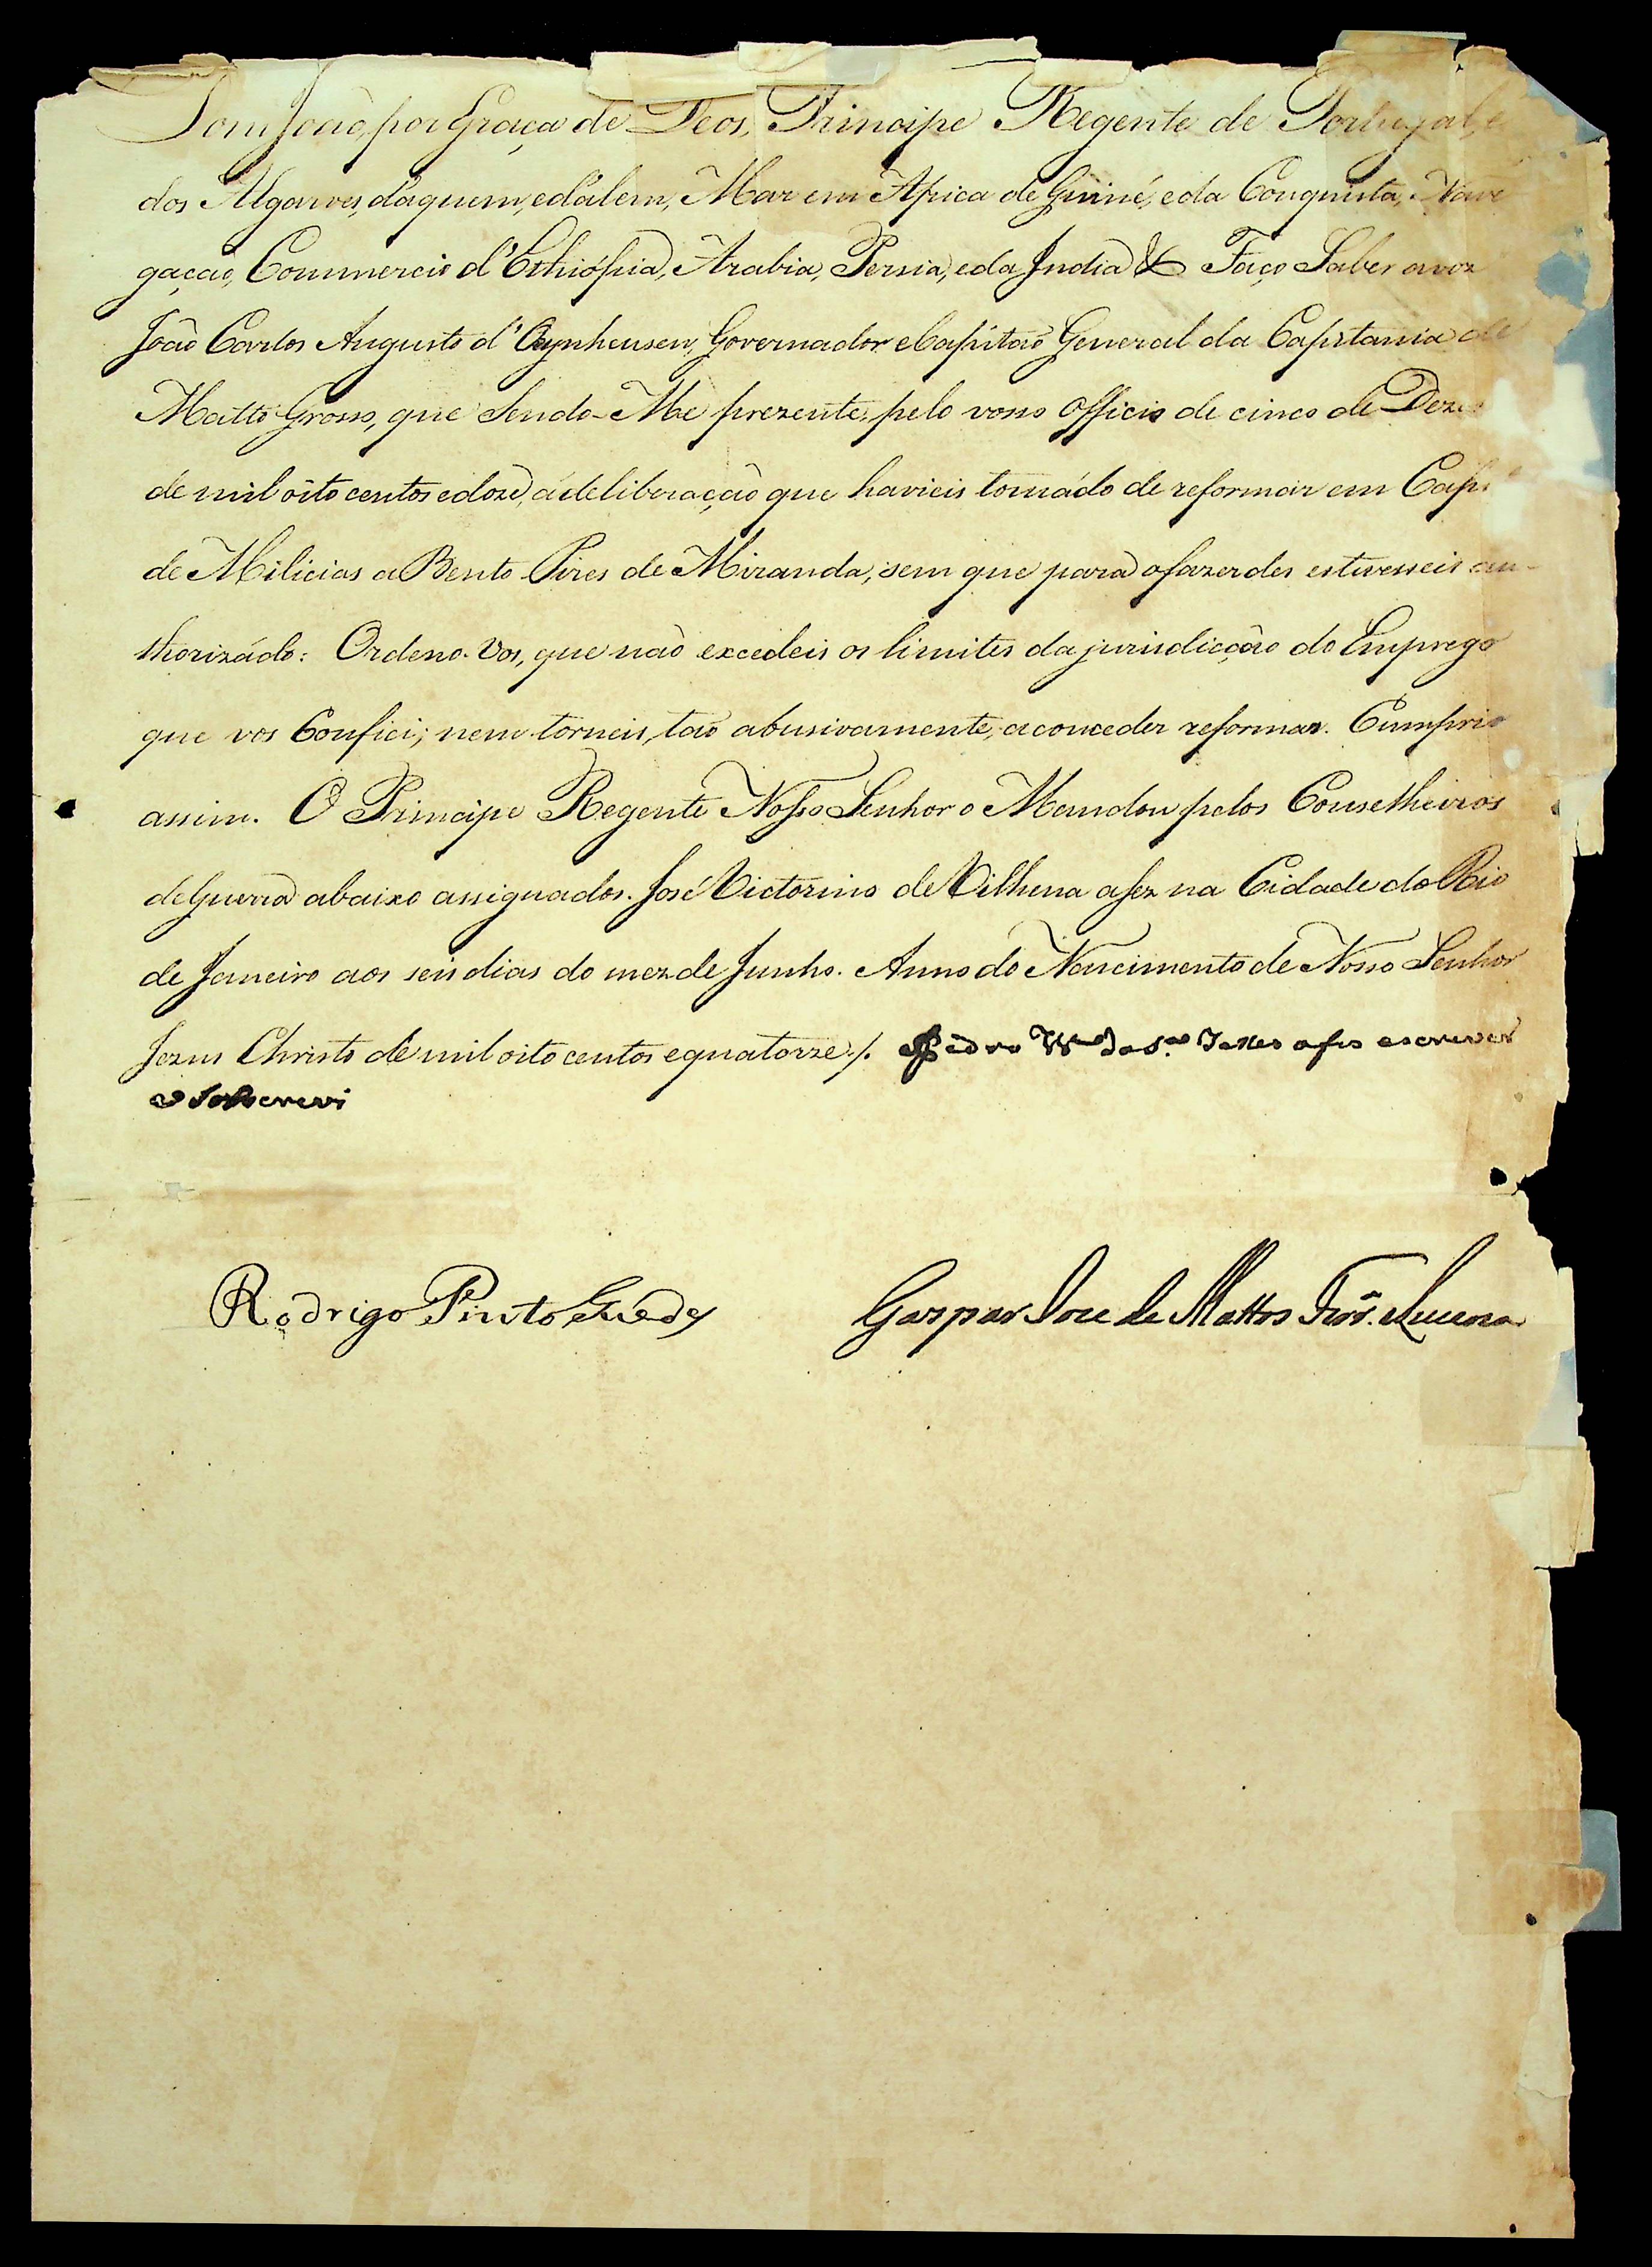 Dom João, por Graça de Deos, Principe Regente de Portugal, e
dos Algarves, d'aquem, e d'alem, Mar em Africa de Guiné, e da Conquista, Nave
gação, Commercio d'Ethiópia, Arabia, Persia, e da India & Faço Saber a vos
João Carlos Augusto d'Oeynhausen, Governador e Capitaõ General da Capitania de
Matto Grosso, que Sendo-Me prezente, pelo vosso Officio de cinco de
de mil oito centos e doze, a deliberação que havieis tomádo de reformar em
de Milicias a Bento Pires de Miranda, sem que para o fazerdes estivesseis au-
thorizádo: Ordeno-Vos, que não excedeis os limites da jurisdicção do Emprego
que vos Confiei; nem torneis, taõ abusivamente, a conceder reformas. Cumprio
assim. O Principe Regente Nosso Senhor o Mandou pelos Conselheiros
de Guerra abaixo assignados. José Victorino de Vilhena a fez na Cidade do Rio
de Janeiro aos seis dias do mez de Junho. Anno do Nascimento de Nosso Senhor
Jezus Christo de mil oito centos e quatorze./. Pedro Telles a fis escrever
e Sobscrevi
Rodrigo Pinto Guedes Gaspar Joze de Mattos Lucena